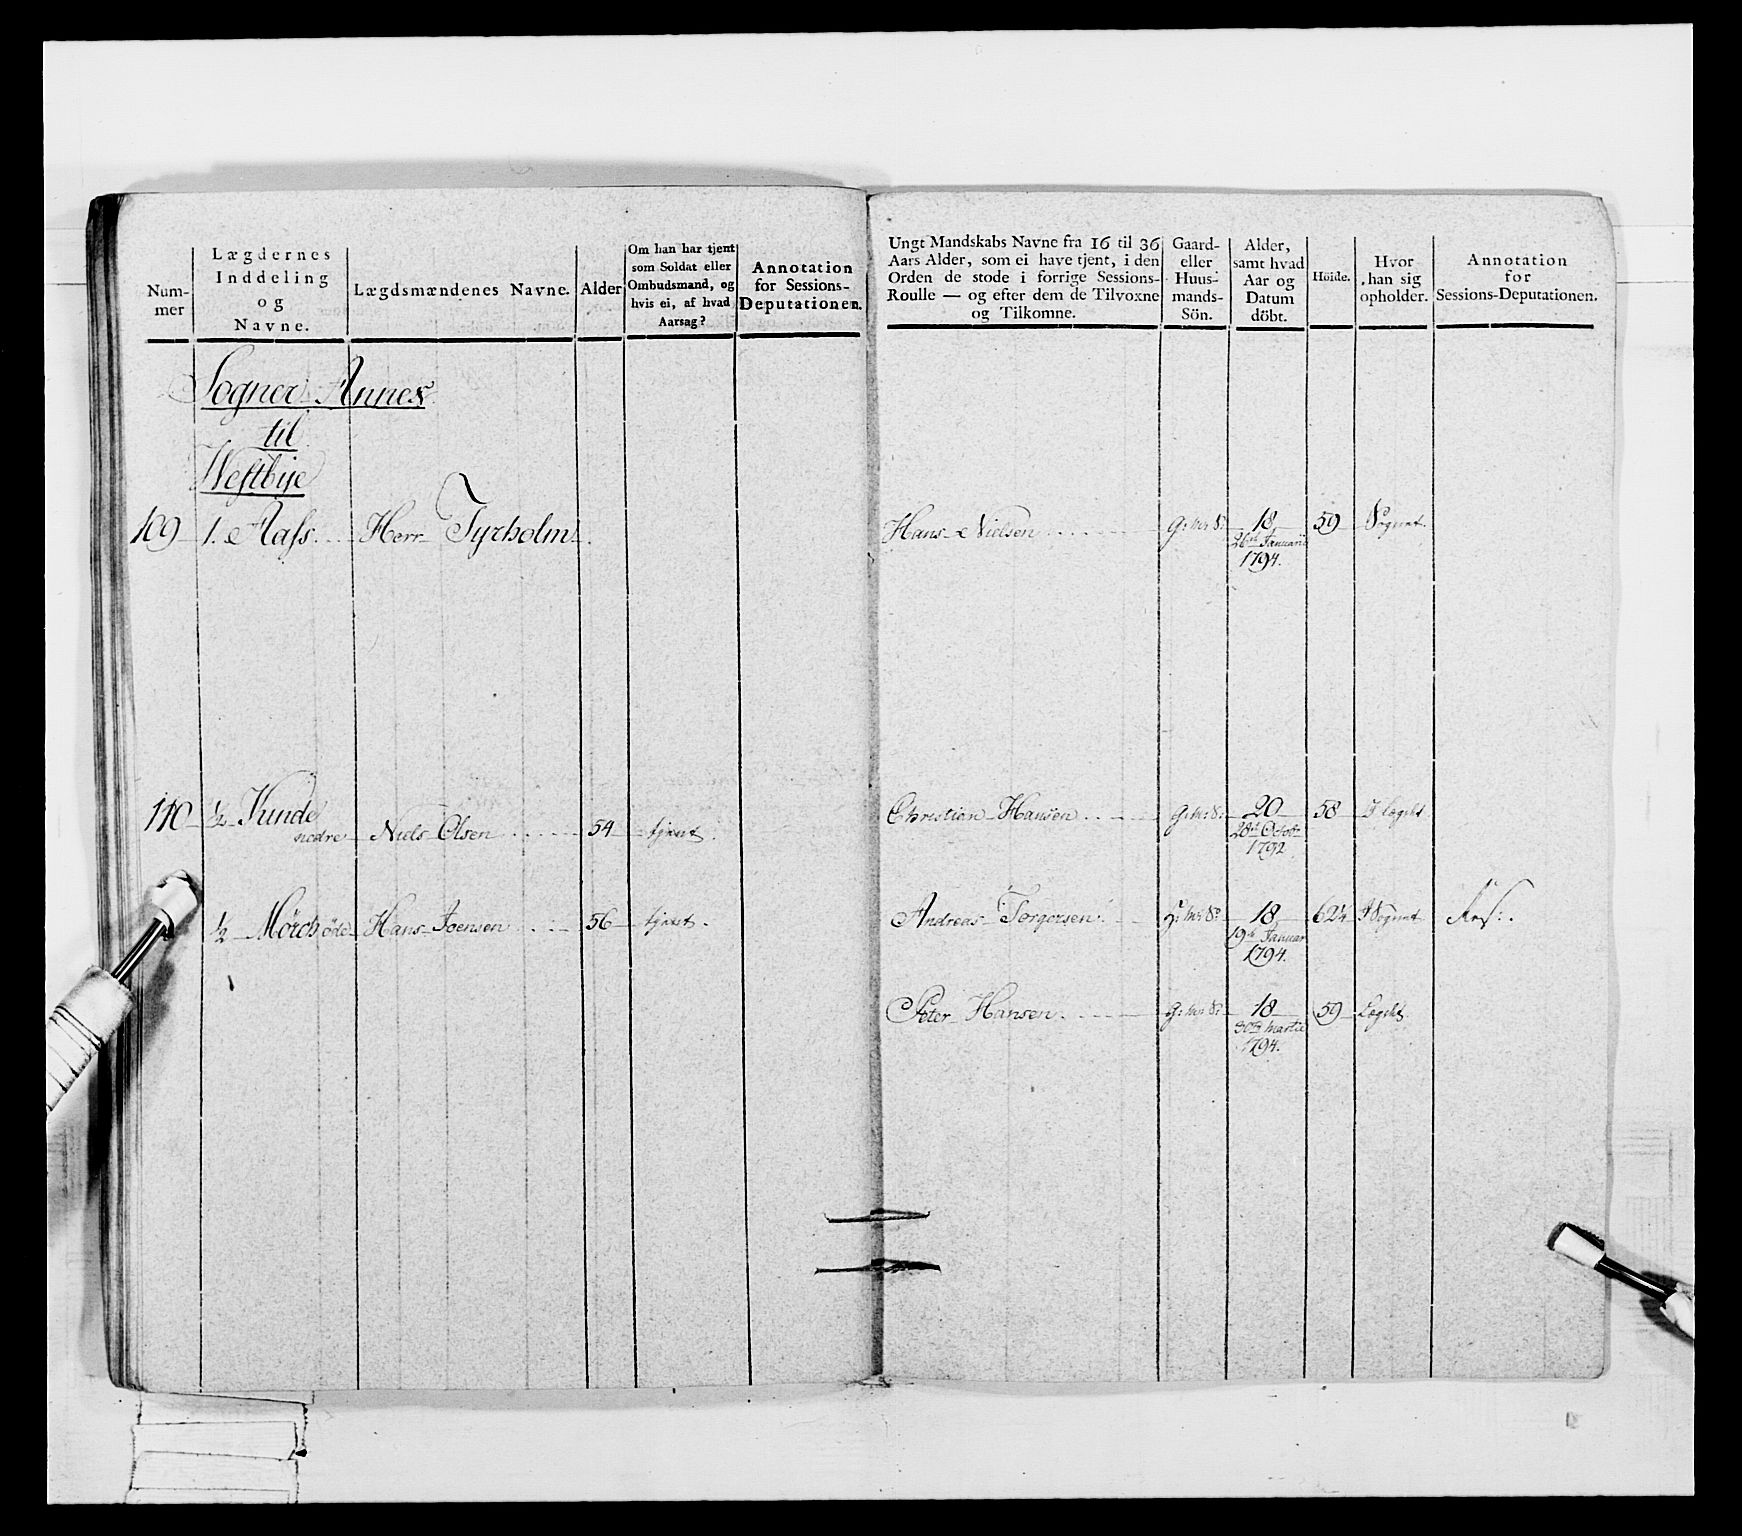 Num-
mer
Lægdernes
Inddeling
og
Navne.
Lægdsmændenes Navne.
Alder
Om han har tjent
som Soldat eller
Ombudsmand, og
hvis ei, af hvad
Aarsag?
Annotation
for Sessions-
Deputationen.
Sogner Annex
til
Westbye
109 1. Aass. Herr Tyrholm
110 1/2 Kunde
nedre Niels Olsen 54 tjent.
1/2 Mörch öde Hans Joensen 56 tjent.
Ungt Mandskabs Navne fra 16 til 36
Aars Alder, som ei have tjent, i den
Orden de stode i forrige Sessions-
Roulle — og efter dem de Tilvoxne
og Tilkomne.
Gaard-
eller
Huus-
mands-
Sön.
Alder,
samt hvad
Aar og
Datum
döbt.
Höide.
Hvor
han sig
opholder.
Annotation
for
Sessions-Deputationen.
Hans Nielsen G: M: S: 18 59 Sognet
26de Januarii
1794.
Christian Hansen G: M: S: 20 58 I Lægdet
28de Octobr
1792
Andreas Torgersen H: M: S: 18 62 1/4 I Sognet
19de Januar
1794.
Peter Hansen G: M: S: 18 59 Lægdet
30te Martii
1794.